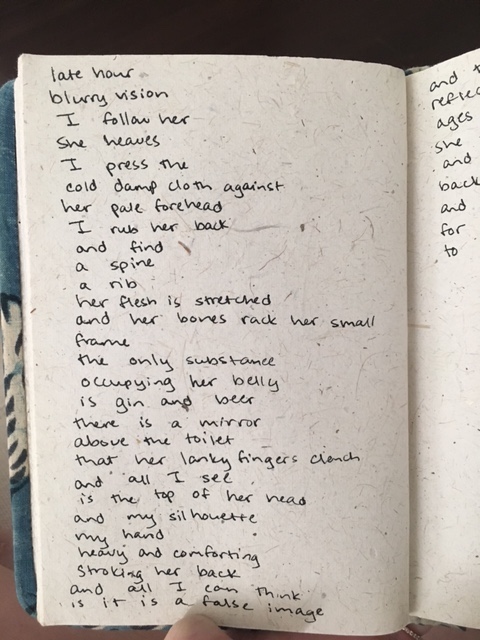 late hour
blurry vision
I follow her
she heaves
I press the
cold damp cloth against
her pale forehead
I rub her back
and find
a spine
a rib
her flesh is stretched
and her bones rack her small
frame
the only substance
occupying her belly
is gin and beer
there is a mirror
above the toilet
that her lanky fingers clench
and all I see
is the top of her head
and my silhouette
my hand
heavy and comforting
stroking her back
and all I can think
is it is a false image
and
reflec
ages
she
and
back
and
for
to